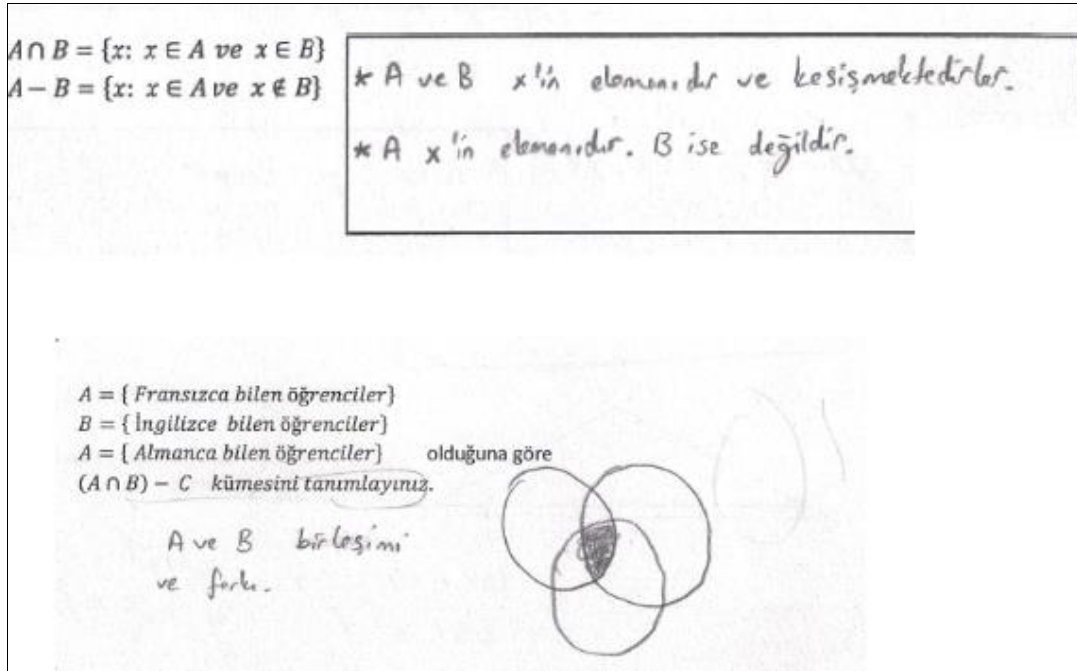 A ∩ B = {x: x ∈ A ve x ∈ B}
A − B = {x: x ∈ A ve x ∉ B}
* A ve B x'in elemanıdır ve kesişmektedirler.
* A x'in elemanıdır. B ise değildir.
A = { Fransızca bilen öğrenciler}
B = { İngilizce bilen öğrenciler}
A = { Almanca bilen öğrenciler} olduğuna göre
(A ∩ B) − C kümesini tanımlayınız.
A ve B birleşimi
ve farkı.